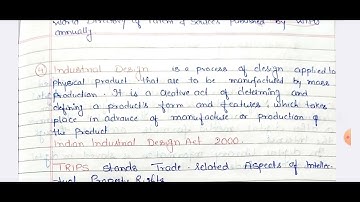 World Directory of
published by WIPO
annually
Industrial Design is a process of design applied to
physical product that are to be manufactured by mass
production. It is a creative act of determing and
defining a product's form and features, which takes
place in advance of manufacture or production of
the product
Indian Industrial Design Act 2000.
TRIPS stands Trade-related Aspects of Intellec-
tual Property Rights